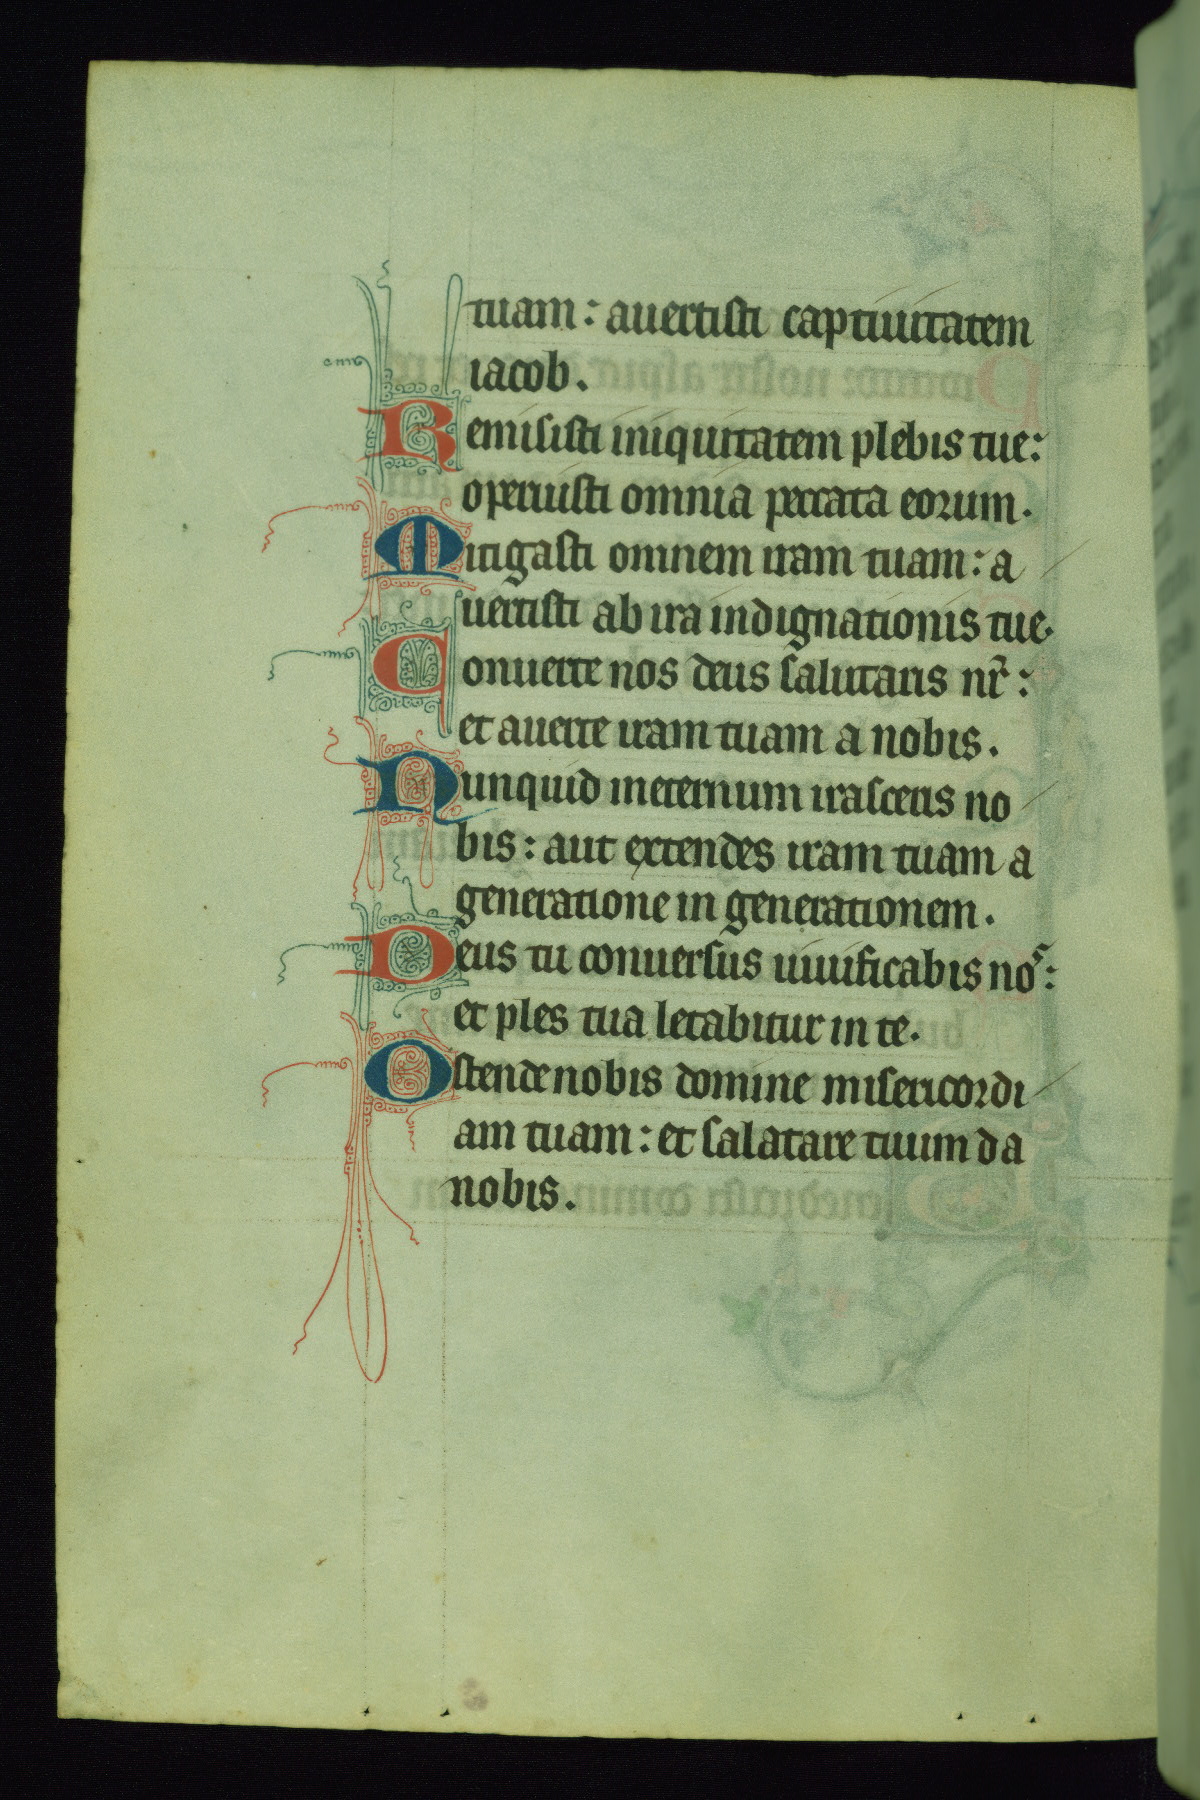 tuam: auertisti captiuitatem
iacob.
Remisisti iniquitatem plebis tue:
operuisti omnia peccata eorum.
Mitigasti omnem iram tuam: a
uertisti ab ira indignationis tue.
Conuerte nos deus salutaris nr̃:
et auerte iram tuam a nobis.
Nunquid ineternum irasceris no
bis: aut extendes iram tuam a
generatione in generationem.
Deus tu conuersus uiuificabis nos:
et plebs tua letabitur in te.
Ostende nobis domine misericordi
am tuam: et salatare tuum da
nobis.